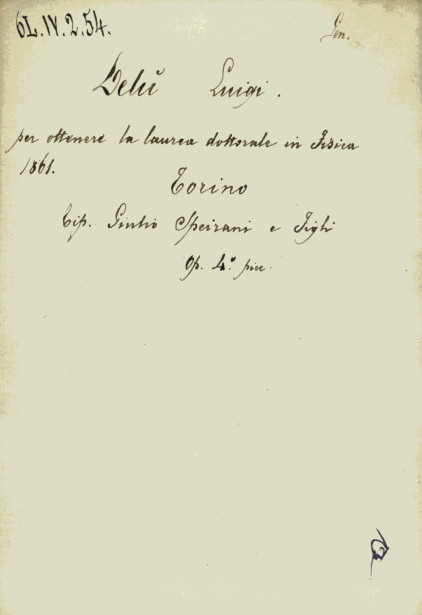 6L.IV.2.54.
Delù Luigi.
per ottenere la laurea dottorale in Fisica
1861.
Torino
Tip. Giulio Speirani e Figli
Op. 4° picc.